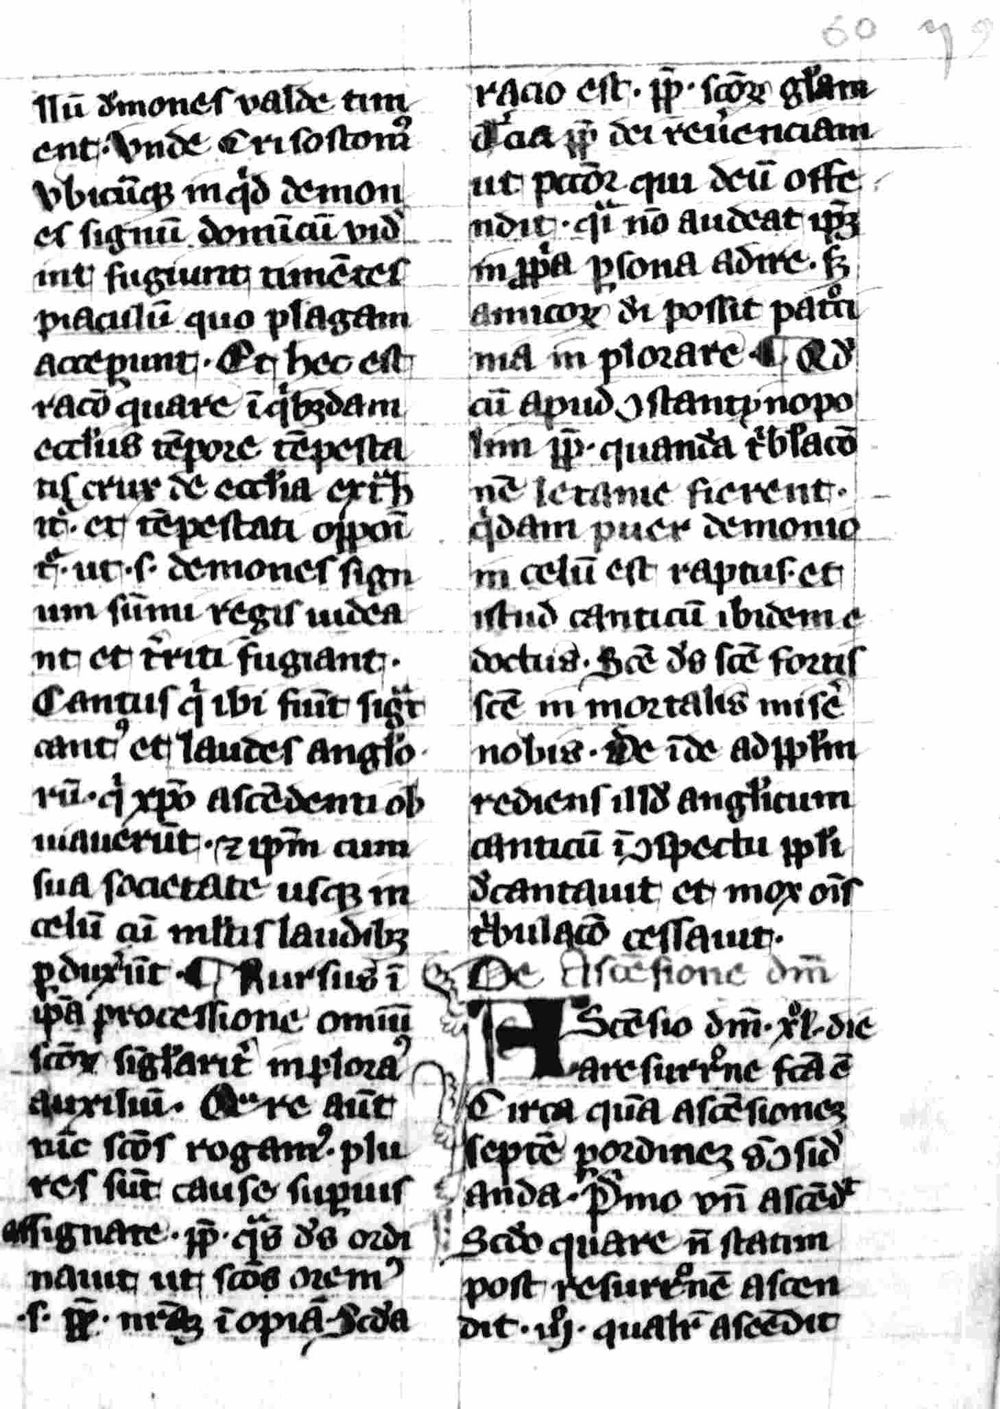 60 79
llū dmones valde tim
ent. Vnde Crisostomꝰ
vbicūqꝫ inqͥd demon
es signū dominicū vid
int fugiunt timētes
piaculū quo plagam
acceperunt. Et hec est
racō quare ī qͥbꝫdam
eccliis tēpore tēpesta
tis crux de ecclia extͣh
itͬ. et tēpestati oppōi
tͬ. ut .s. demones sign
um sūmi regis uidea
nt et tͬriti fugiant.
Cantus qͥ ibi fiūt sigͣt
cantꝰ et laudes anglo
rū. qͥ xp̄o ascēdenti ob
uiauerūt. ⁊ ip̄m cum
sua societate usqꝫ in
celū cū mltis laudibꝫ
ꝑduxͬūt. ¶ Rursus ī
ip̄a processione omniū
scōꝝ singlaritͬ inploraꝰ
auxiliū. Quare aūt
nūc scōs rogamꝰ. plu
res sūt cause superius
assignate. pp̄. qͣs ds ordi
nauit ut scōs oremꝰ
.s. pp̄. nrāꝫ īopiā. Scda
racio est. pp̄. scōꝝ glam
Tͨcia pp̄ dei reuͬenciam
ut pctōꝝ qui deū offe
ndit. qͥ nō audeat ip̄ꝫ
in pp̄a ꝑsona adire. sꝫ
amicoꝝ di possit patͦci
nia inplorare ¶ Qd
cū apud ꝯstantynopo
lim pp̄. quanda tͥblacō
nē letanie fierent.
qͥdam puer demonio
in celū est raptus. et
istud canticū ibidem e
doctus. Scē ds scē fortis
scē inmortalis misērͤ
nobis. De īde ad pplm
rediens illd anglicum
canticū ī ꝯspectu ppli
dcantauit et mox ōis
tͥbulacō cessauit.
De Ascēsione dn̄i
AScēsio dn̄i. xͦl. die
a resurrͦne fcā ē
Circa quā ascēsionez
septē ꝑ ordinez sūt ꝯsidͬ
anda. Pͥmo vn̄ ascēdͭ
Scdo quare n̄ statim
post resurrͦnē ascen
dit. iijͦ. qualr̄ ascēdit